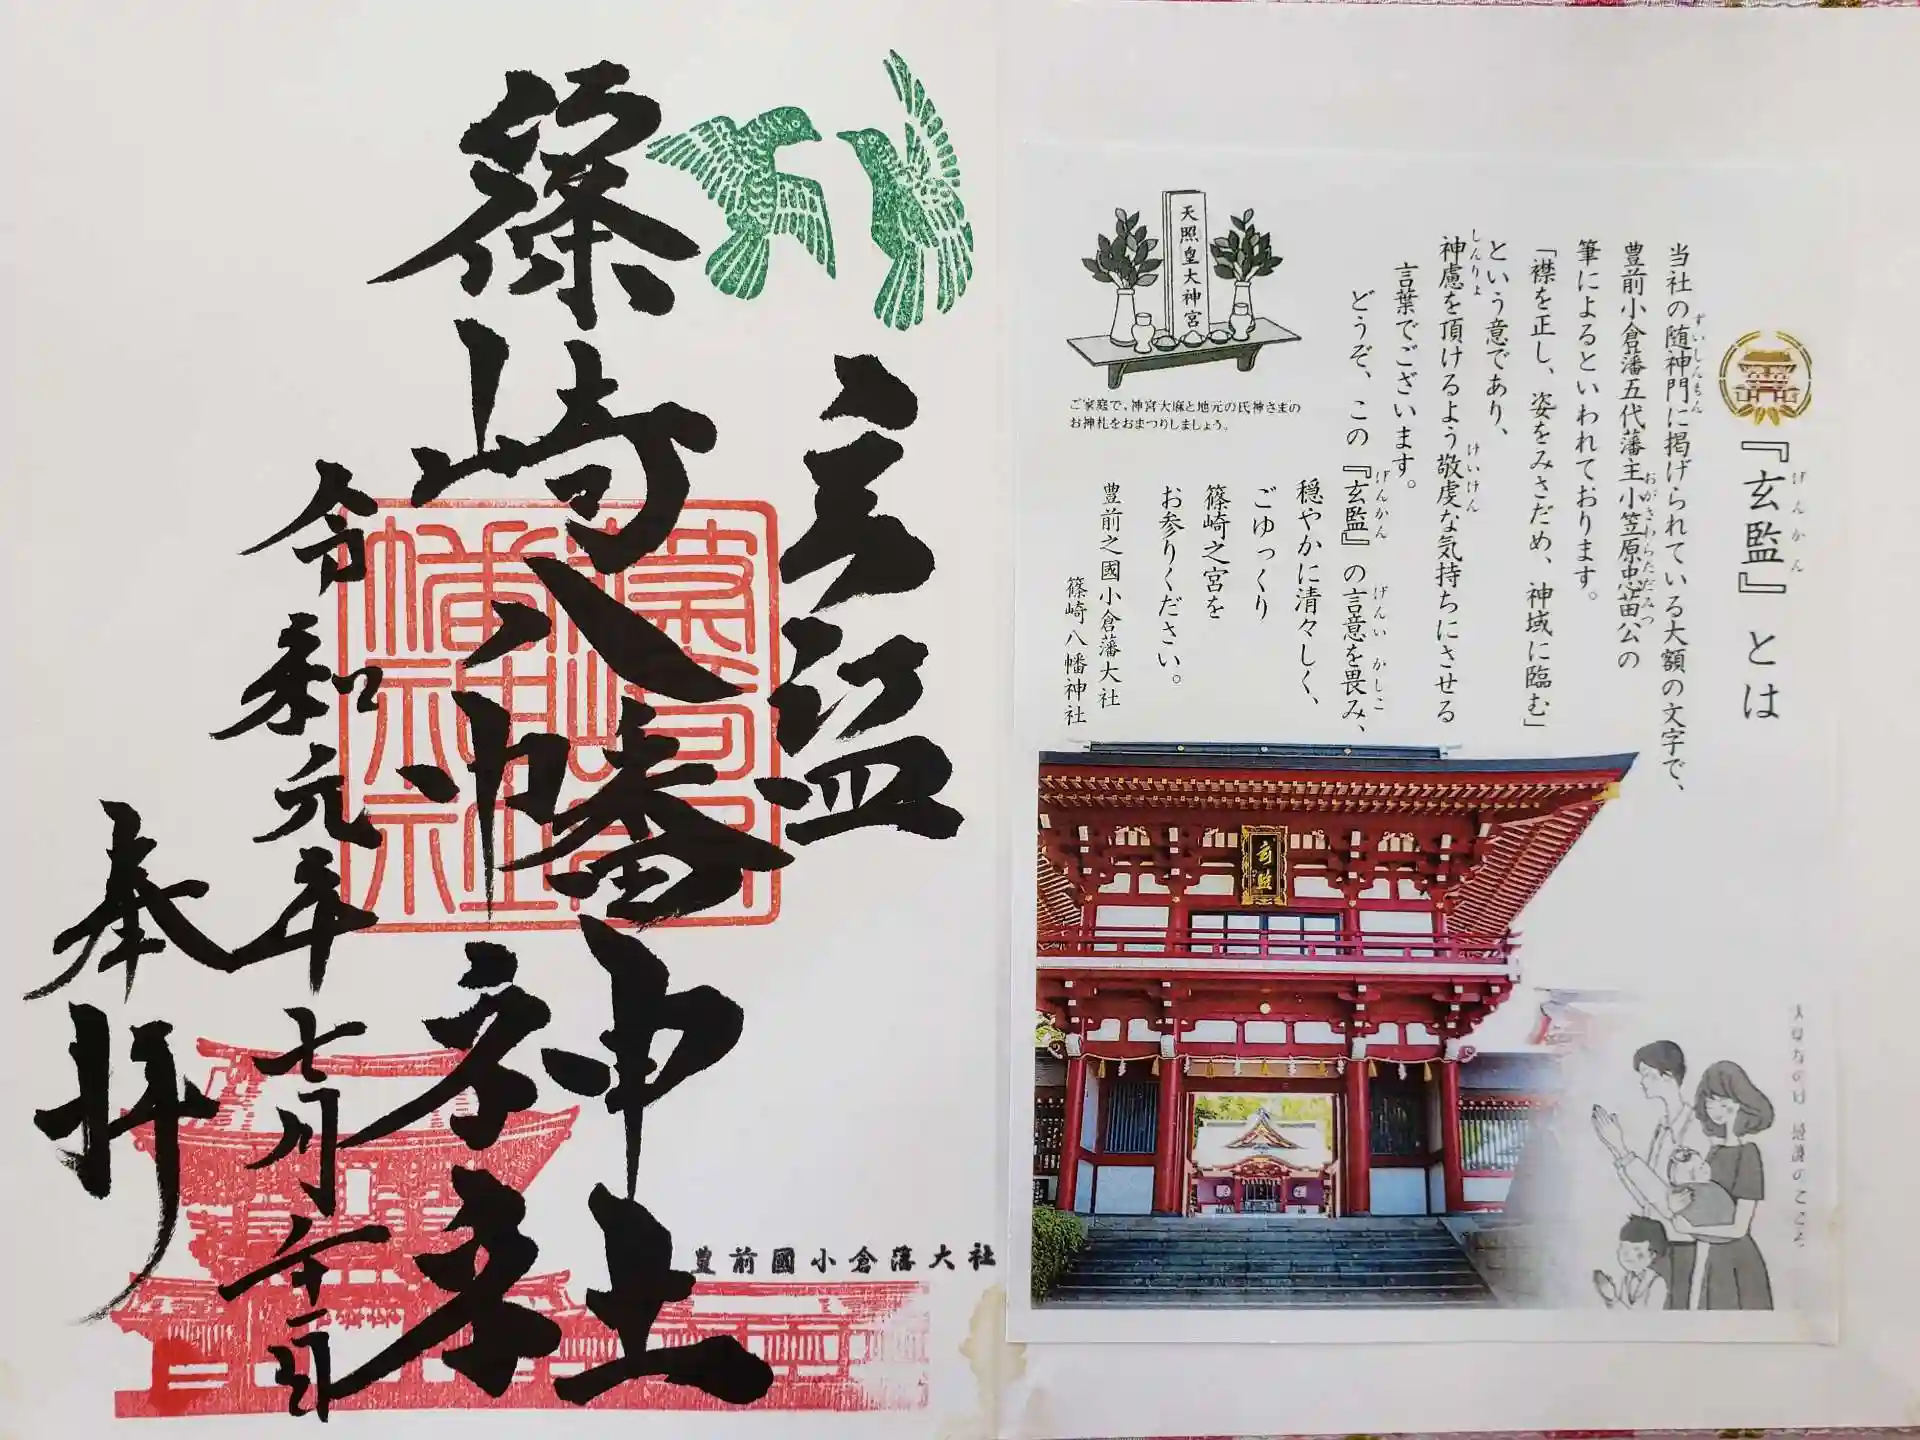 『玄監』とは
げんかん
当社の随神門に掲げられている大額の文字で、
ずいしんもん
豊前小倉藩五代藩主小笠原忠苗公の
おがさわらただみつ
筆によるといわれております。
「襟を正し、姿をみさだめ、神域に臨む」
という意であり、
神慮を頂けるよう敬虔な気持ちにさせる
しんりょ
けいけん
言葉でございます。
どうぞ、この『玄監』の言意を畏み、
げんかん
げんい
かしこ
穏やかに清々しく、
ごゆっくり
篠崎之宮を
お参りください。
豊前之國小倉藩大社
篠崎八幡神社
天照皇大神宮
ご家庭で、神宮大麻と地元の氏神さまの
お神札をおまつりしましょう。
玄監
玄監
篠崎八幡神社
篠崎八幡神社
豊前國小倉藩大社
令和元年七月二十二日
奉拝